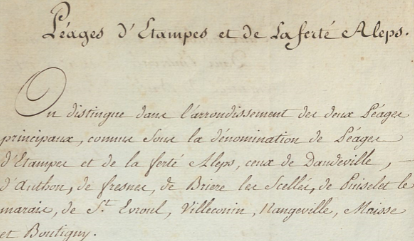 Péages d'Etampes et de Laferté Aleps.
On distingue dans l'arrondissement des deux Péages
principaux, connus sous la dénomination de Péages
d'Etampes et de la ferté Aleps, ceux de Dandeville, -
d'Authon, de fresne, de Briere les Scellés, de Puiselet le
marais, de St. Evroul, Villeconin, Mangeville, Maisse
et Boutigny.